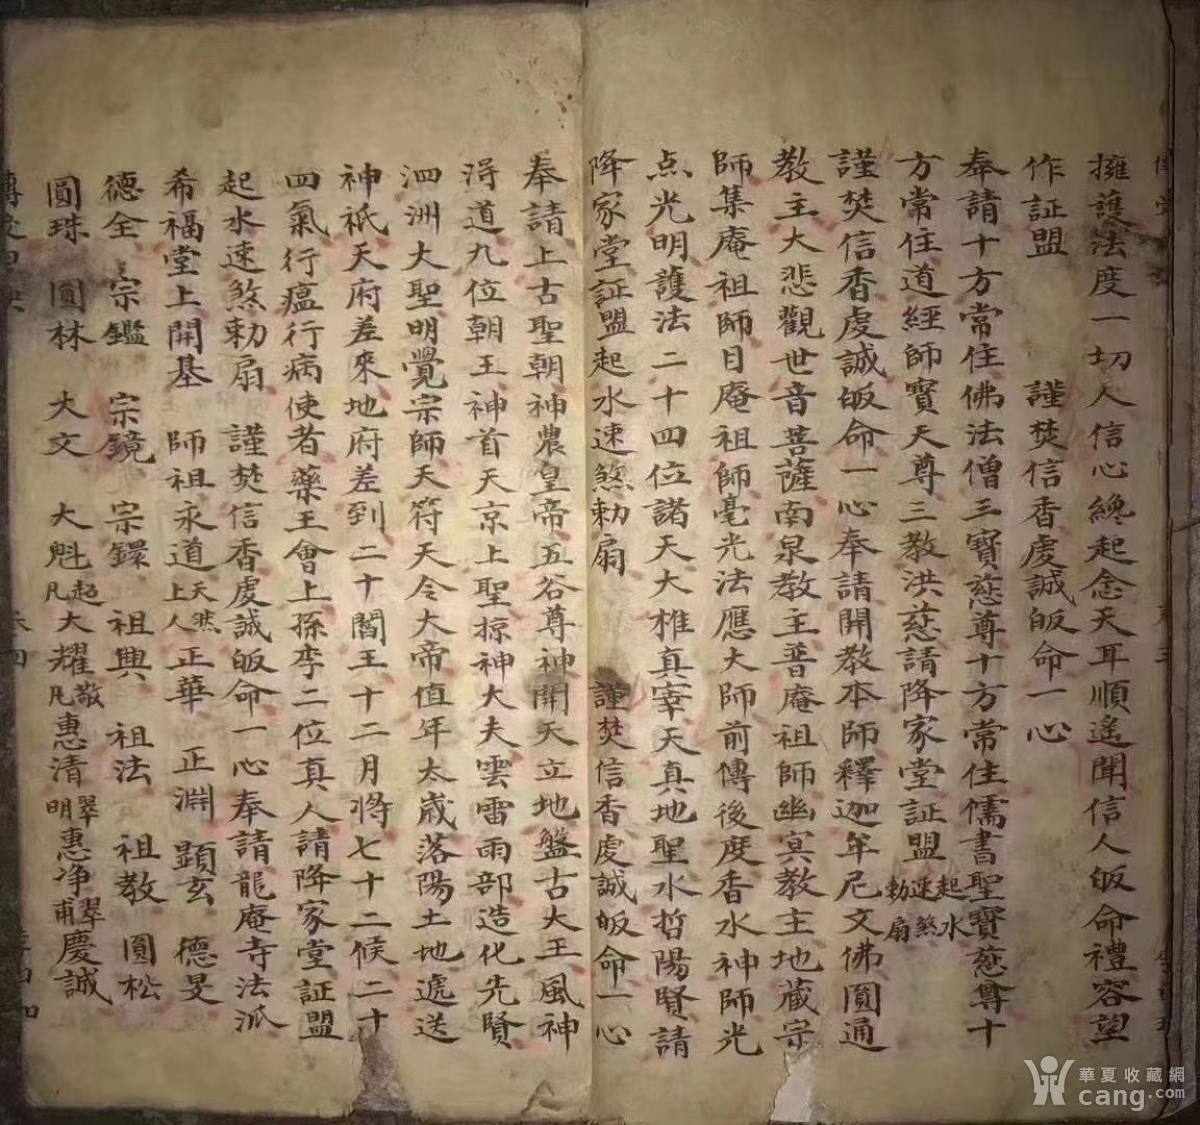 擁護法度一切人信心纔起念天耳順遙聞信人皈命禮容望
作証盟　謹焚信香虔誠皈命一心
奉請十方常住佛法僧三寶慈尊十方常住儒書聖寶慈尊十
方常住道經師寶天尊三教洪慈請降家堂証盟起水速煞勅扇
謹焚信香虔誠皈命一心奉請開教本師釋迦牟尼文佛圓通
教主大悲觀世音菩薩南泉教主普庵祖師幽冥教主地藏宗
師集庵祖師日庵祖師毫光法應大師前傳後度香水神師光
点光明護法二十四位諸天大権真宰天真地聖水哲陽賢請
降家堂証盟起水速煞勅扇　謹焚信香虔誠皈命一心
奉請上古聖朝神農皇帝五谷尊神開天立地盤古大王風神
淂道九位朝王神首天京上聖掠神大夫雲雷雨部造化先賢
泗洲大聖明覺宗師天符天令大帝值年太歲落陽土地遞送
神祇天府差來地府差到二十閻王十二月將七十二候二十
四氣行瘟行病使者藥王會上孫李二位真人請降家堂証盟
起水速煞勅扇　謹焚信香虔誠皈命一心奉請龍庵寺法派
希福堂上開基　師祖永道天然上人正華　正淵　顕玄　德旻
德全　宗鑑　宗鏡　宗鏍　祖興　祖法　祖教　圓松
圓珠　圓林　大文　大魁超凡大耀敬凡惠清翠明惠净翠甫慶誠
華夏收藏網
cang.com